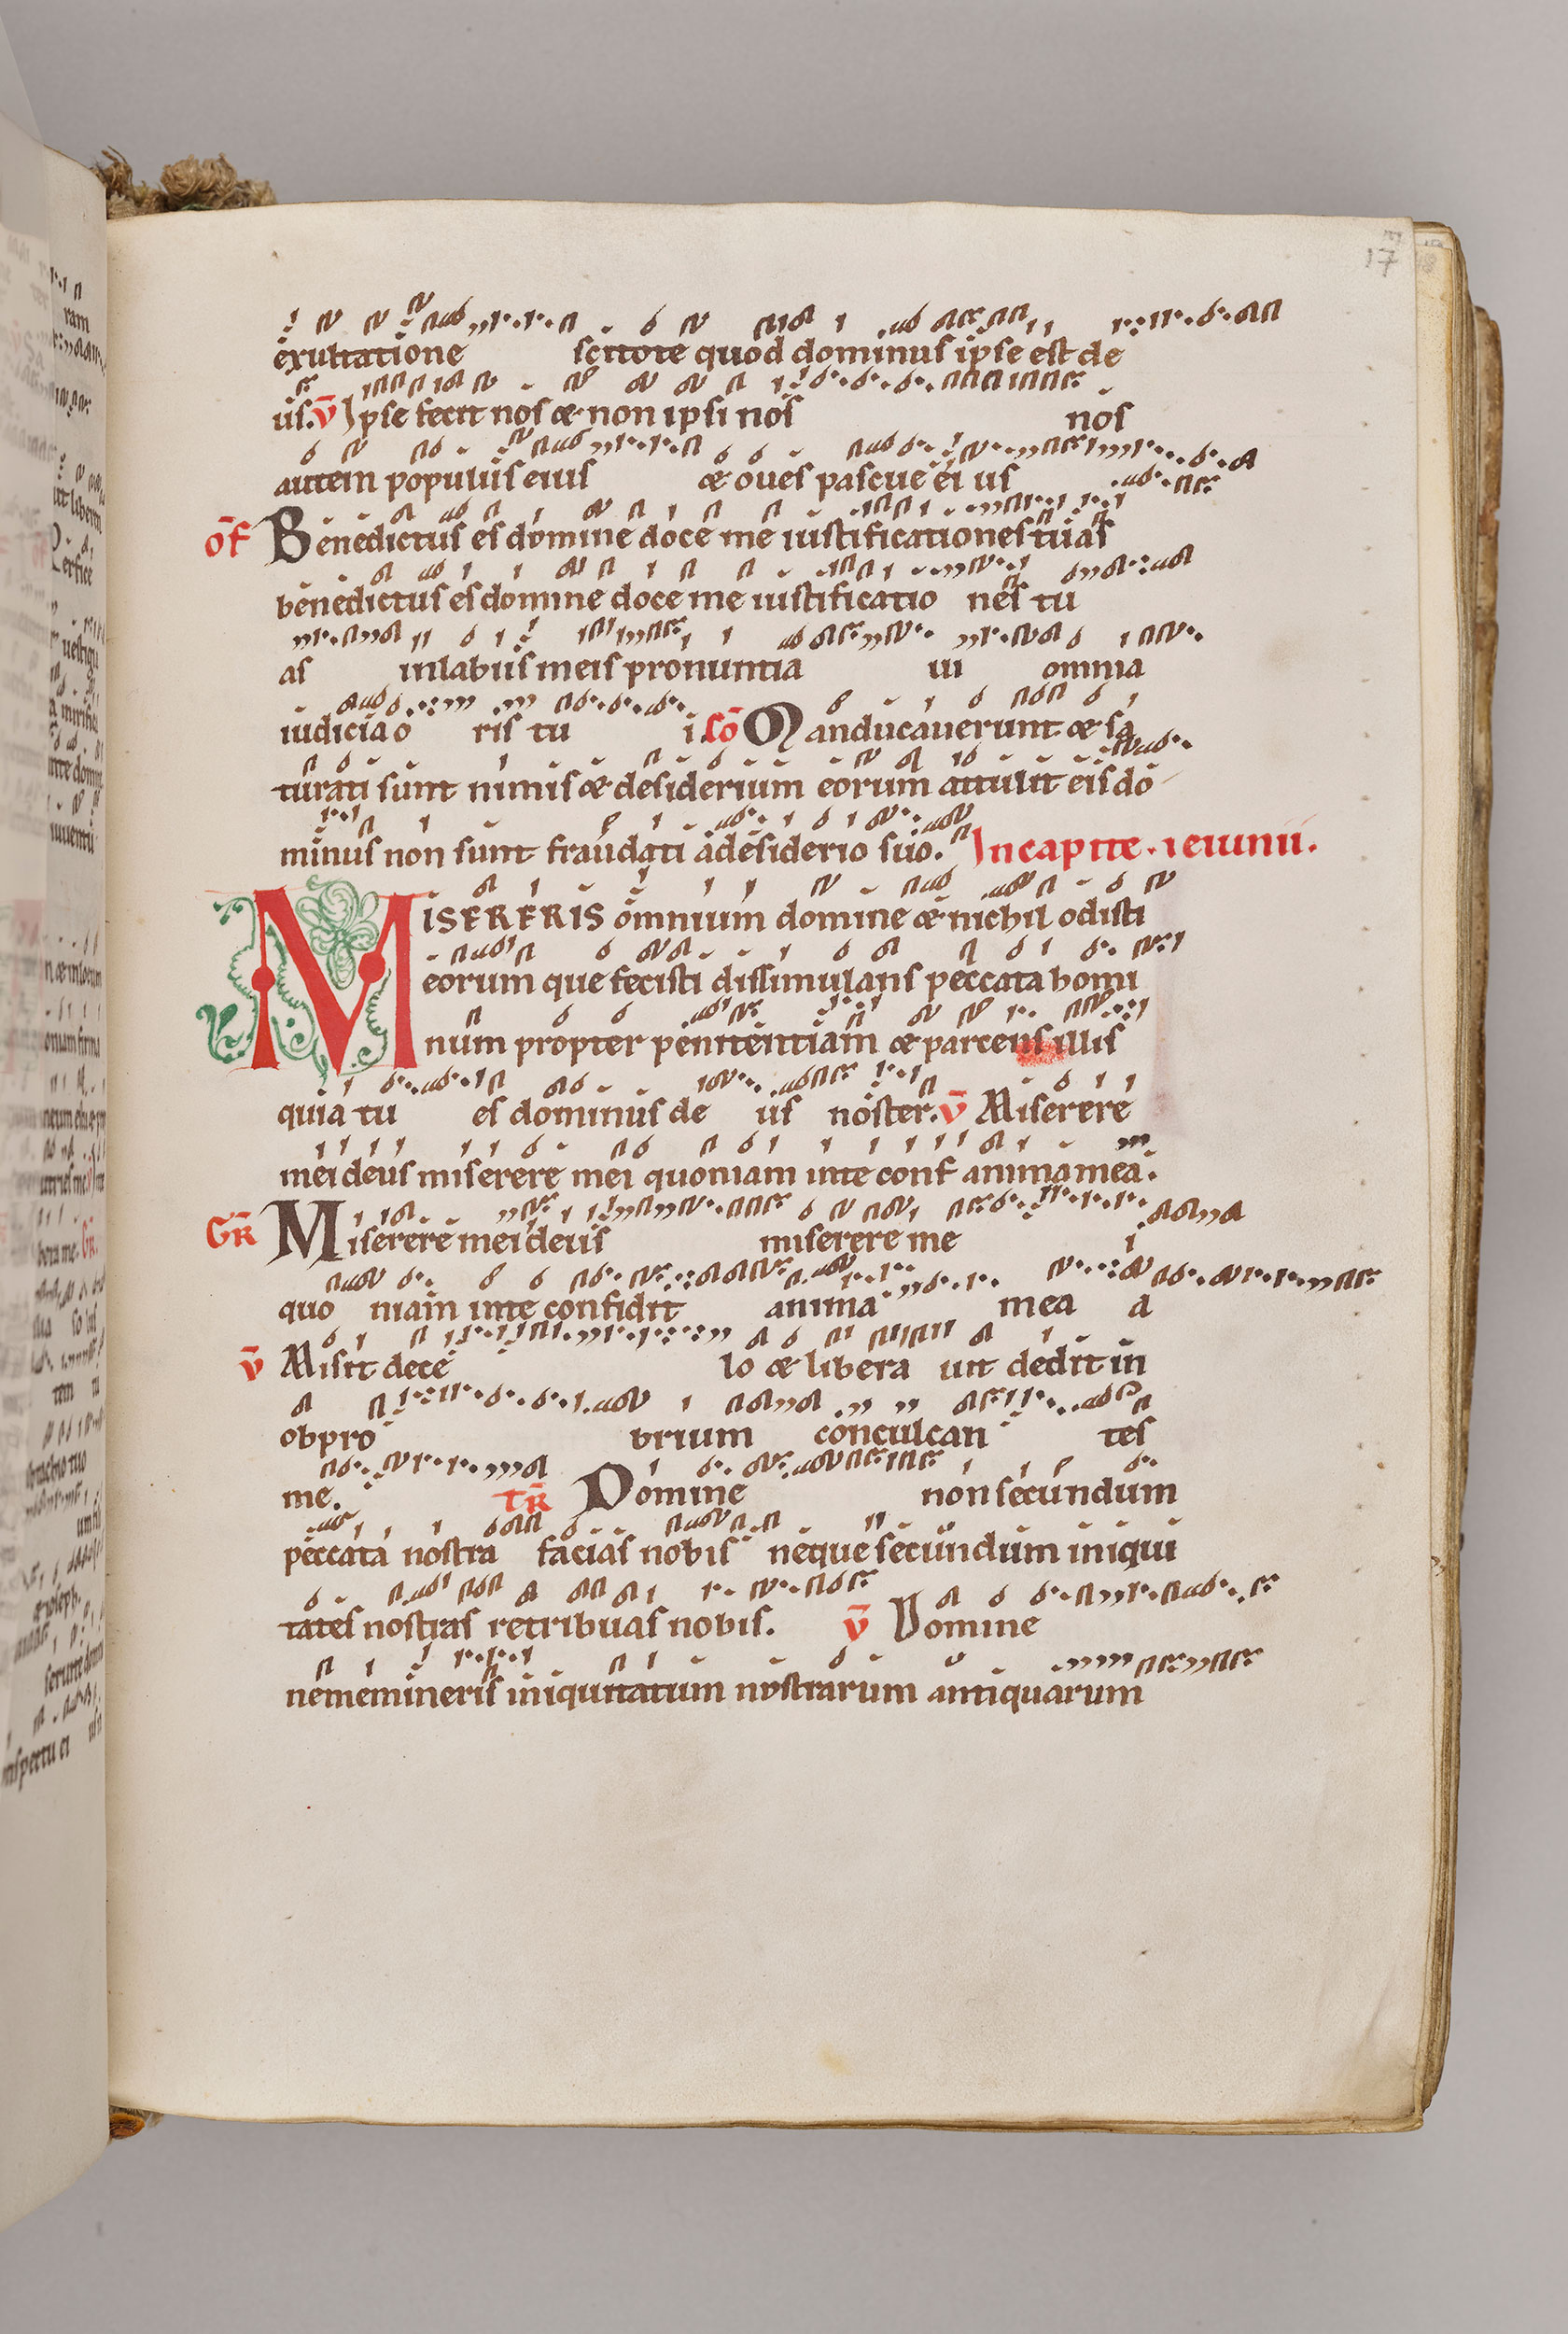 17
exultatione scitote quod dominus ipse est de
us. V Ipse fecit nos & non ipsi nos nos
autem populus eius & oues pascue ei us
OF Benedictus es domine doce me iustificationes tuas
benedictus es domine doce me iustificatio nes tu
as inlabiis meis pronuntia ui omnia
iudicia o ris tu i. CO Manducauerunt & sa
turati sunt nimis & desiderium eorum attulit eis do
minus non sunt fraudati adesiderio suo. Incapite . ieiunii .
MISERERIS omnium domine & nichil odisti
eorum que fecisti dissimulans peccata homi
num propter penitentiam & parcens illis
quia tu es dominus de us noster. V Miserere
mei deus miserere mei quoniam inte conf anima mea.
GR Miserere mei deus miserere me i
quo niam inte confidit anima mea a
V Misit dece lo & libera uit dedit in
obpro brium conculcan tes
me. TR Domine non secundum
peccata nostra facias nobis neque secundum iniqui
tates nostras retribuas nobis. V Domine
nememineris iniquitatum nostrarum antiquarum